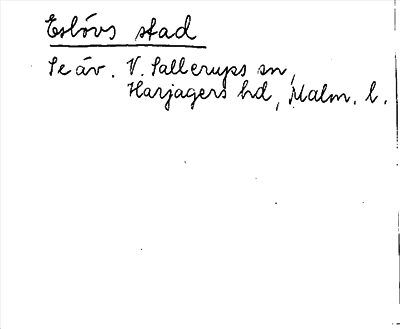 Eslövs stad
Se äv. V. Sallerups sn,
Harjagers hd, Malm. l.